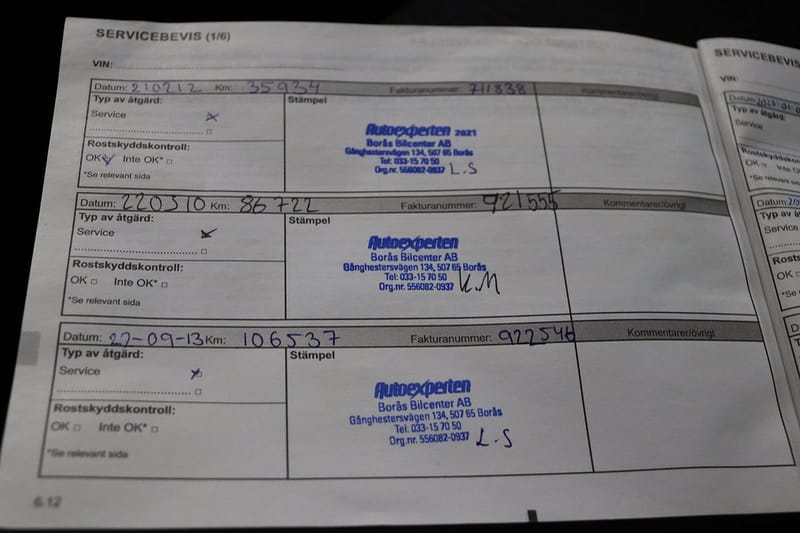 SERVICEBEVIS (1/6)
VIN:
Datum: 210212 Km: 35934 Fakturanummer: 711838 Kommentarer/övrigt
Typ av åtgärd: Stämpel
Service x
Rostskyddskontroll:
OK Inte OK*
*Se relevant sida
Autoexperten 2021
Borås Bilcenter AB
Gånghestervägen 134, 507 65 Borås
Tel: 033-15 70 50
Org.nr. 556082-0937 L.S
Datum: 220310 Km: 86722 Fakturanummer: 921555 Kommentarer/övrigt
Typ av åtgärd: Stämpel
Service x
Rostskyddskontroll:
OK Inte OK*
*Se relevant sida
Autoexperten
Borås Bilcenter AB
Gånghestersvägen 134, 507 65 Borås
Tel: 033-15 70 50
Org.nr. 556082-0937 K.M
Datum: 22-09-13 Km: 106537 Fakturanummer: 922546 Kommentarer/övrigt
Typ av åtgärd: Stämpel
Service x
Rostskyddskontroll:
OK Inte OK*
*Se relevant sida
Autoexperten
Borås Bilcenter AB
Gånghestersvägen 134, 507 65 Borås
Tel: 033-15 70 50
Org.nr. 556082-0937 L.S
6.12
SERVICEBEVIS
VIN:
Datum:
Typ av
Service
OK Inte OK*
*Se relevant
Datum: 20
Typ av å
Service
OK
*Se